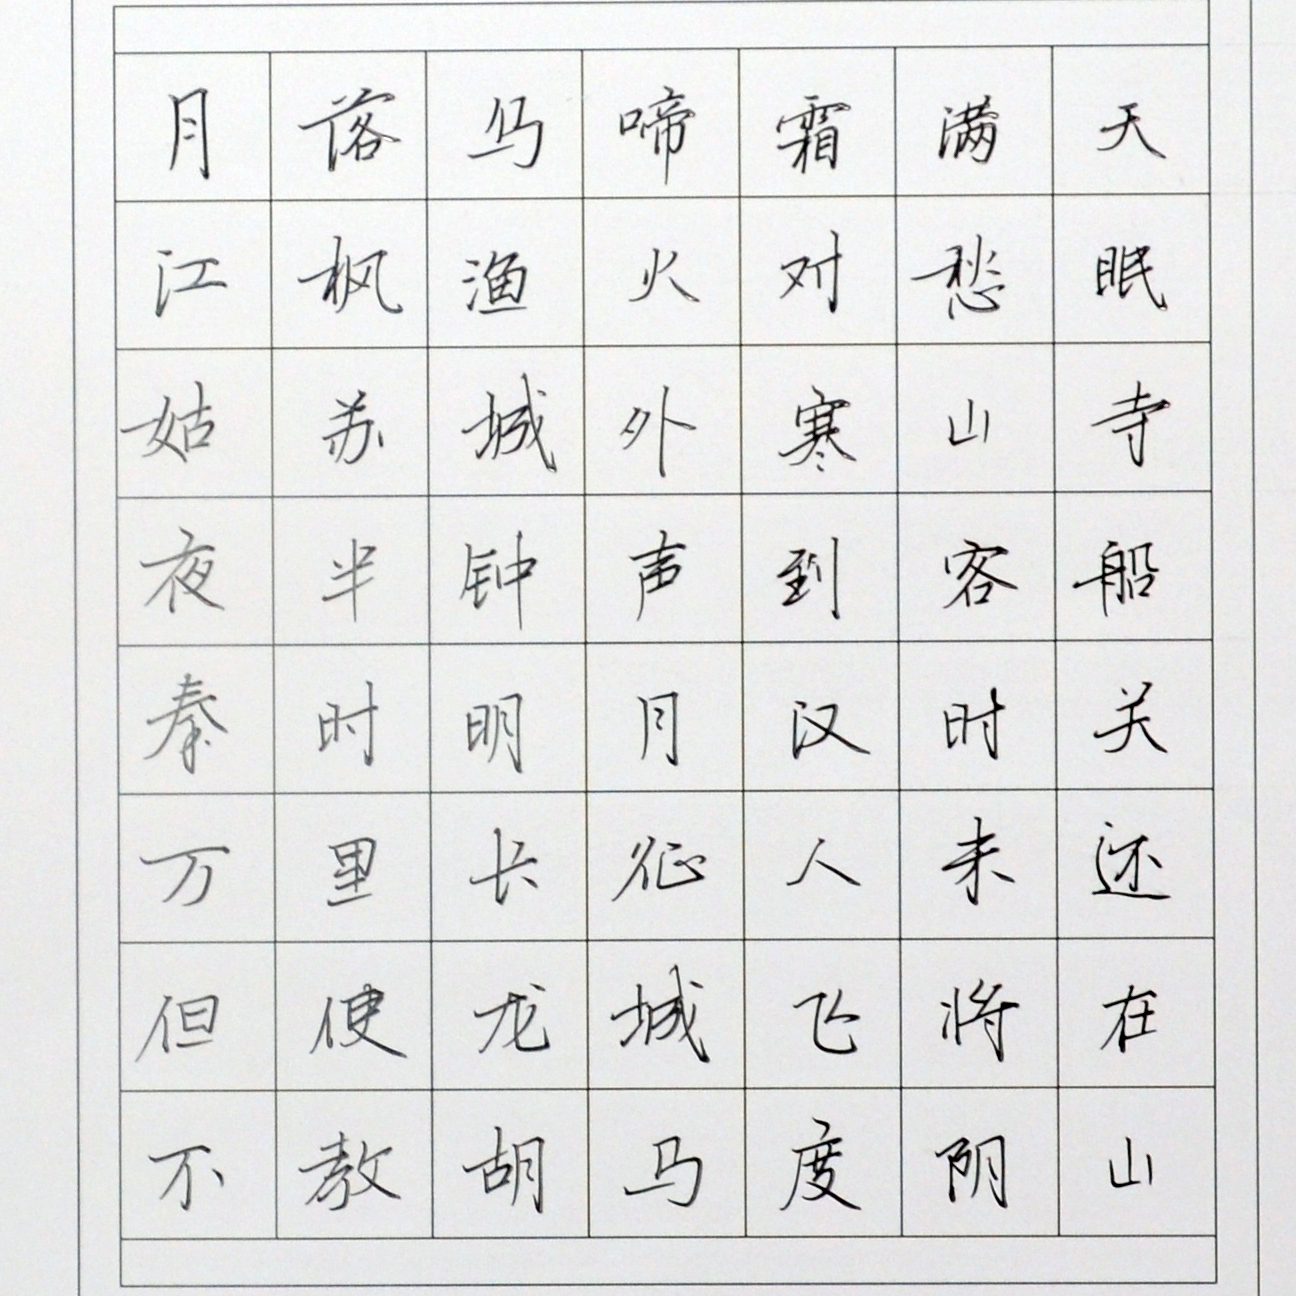 月落乌啼霜满天
江枫渔火对愁眠
姑苏城外寒山寺
夜半钟声到客船
秦时明月汉时关
万里长征人未还
但使龙城飞将在
不教胡马度阴山